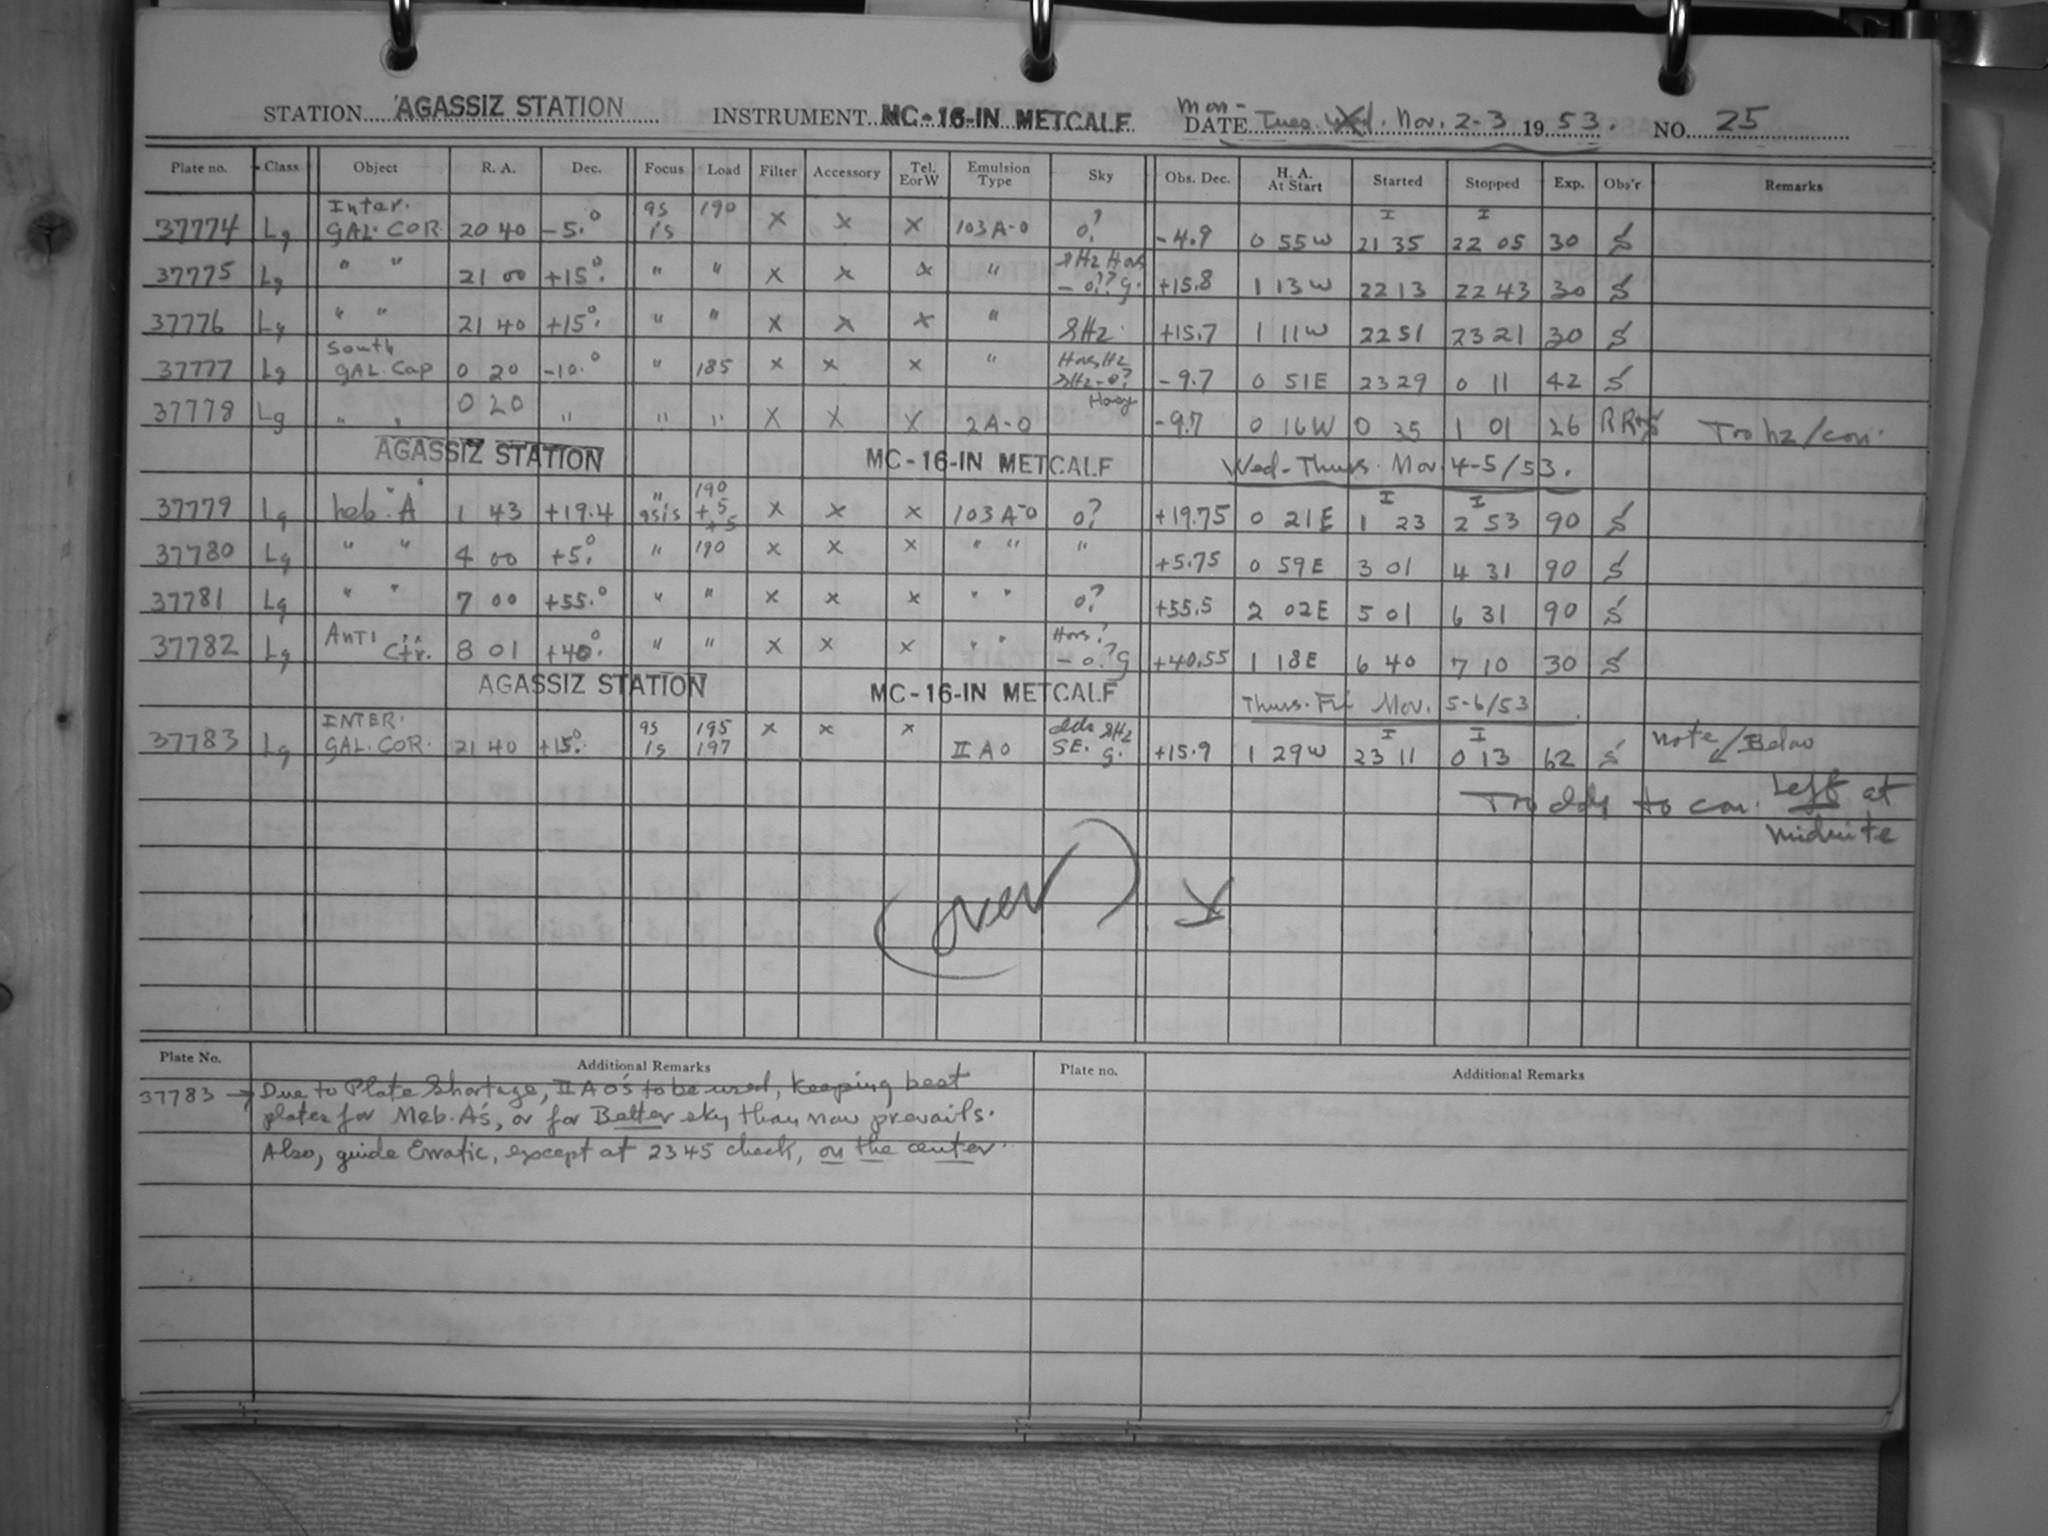 STATION AGASSIZ STATION INSTRUMENT MC-16-IN METCALF DATE Mon- Tues. Nov. 2-3 1953. NO. 25
Plate no. Class Object R. A. Dec. Focus Load Filter Accessory Tel. E or W Emulsion Type Sky Obs. Dec. H. A. At Start Started Stopped Exp. Obs'r Remarks
37774 Lg Inter. GAL. COR. 20 40 -5.° 9s is 190 X X X 103A-O o? -4.9 0 55W I 21 35 I 22 05 30 S
37775 Lg " " 21 00 +15.° " " X X X " SHz - o?? g. +15.8 1 13W 22 13 22 43 30 S
37776 Lg " " 21 40 +15.° " " X X X " SHz. +15.7 1 11W 22 51 23 21 30 S
37777 Lg South GAL. Cap 0 20 -10.° " 185 X X X " SHz-o? -9.7 0 51E 23 29 0 11 42 S
37778 Lg " " 0 20 " " " X X X 2A-O Hazy -9.7 0 16W 0 35 1 01 26 Too hz/con.
AGASSIZ STATION MC-16-IN METCALF Wed-Thurs. Nov. 4-5/53.
37779 Lg "A" 1 43 +19.4 " 9sis 190 +5 +5 X X X 103A-O o? +19.75 0 21E I 1 23 I 2 53 90 S
37780 Lg " " 4 00 +5.° " 190 X X X " " " +5.75 0 59E 3 01 4 31 90 S
37781 Lg " " 7 00 +55.° " " X X X " " o? +55.5 2 02E 5 01 6 31 90 S
37782 Lg ANTI Ctr. 8 01 +40.° " " X X X " " - o.?g +40.55 1 18E 6 40 7 10 30 S
AGASSIZ STATION MC-16-IN METCALF Thurs-Fri Nov. 5-6/53
37783 Lg INTER. GAL. COR. 21 40 +15.° 9s 1s 195 197 X X X II A O SHz SE. g. +15.9 1 29W I 23 11 I 0 13 62 S note/Below
Too cldy to con. Left at
midnite
(over)
Plate No. Additional Remarks Plate no. Additional Remarks
37783 → Due to Plate Shortage, II A O's to be used, keeping best
plates for Neb. A's, or for Better sky than now prevails.
Also, guide Erratic, except at 2345 check, on the center.